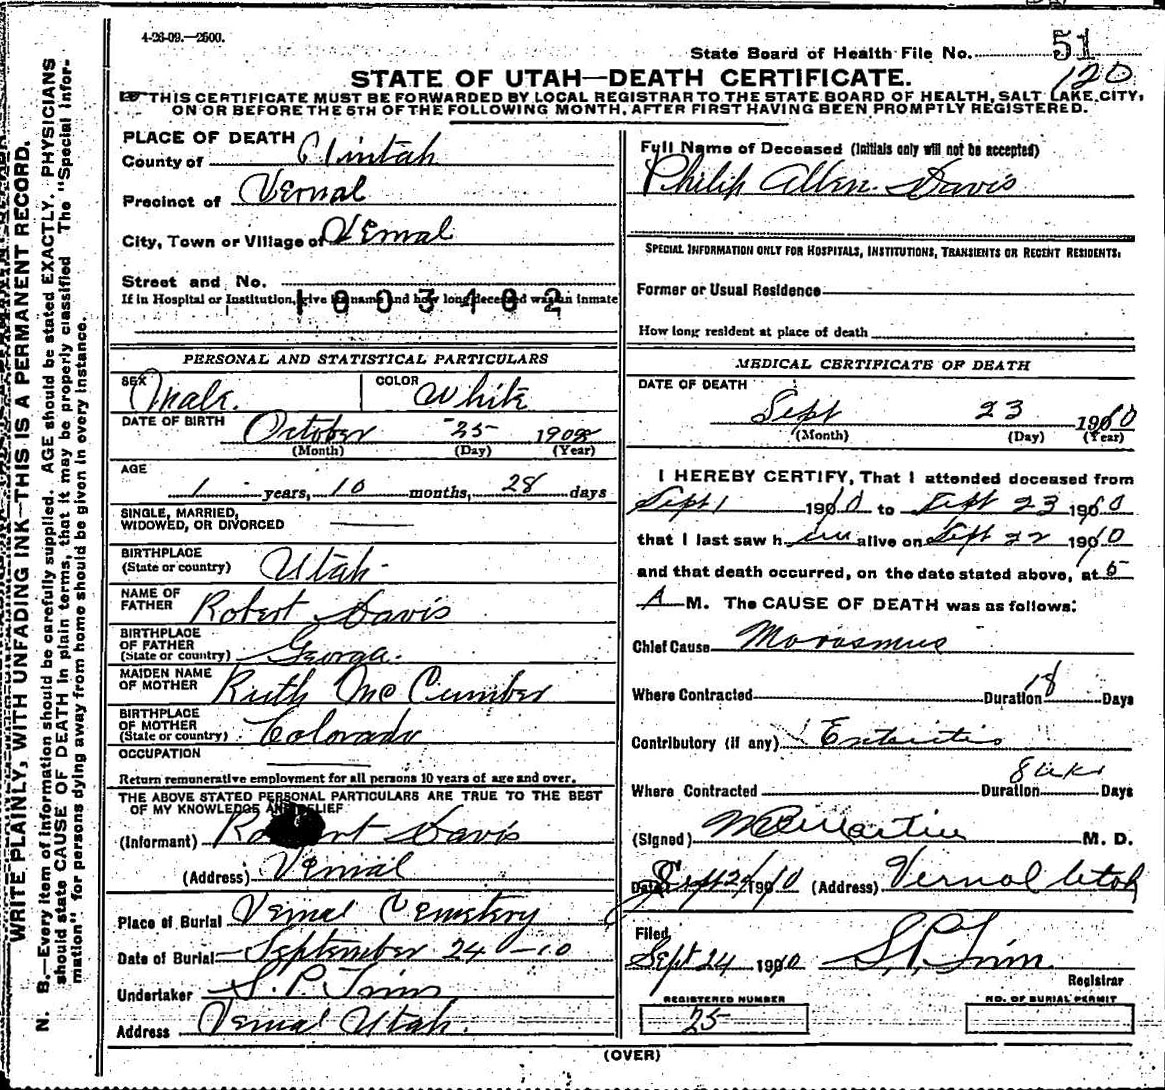 4-26-09.—2500.
State Board of Health File No. 51
120
STATE OF UTAH—DEATH CERTIFICATE.
THIS CERTIFICATE MUST BE FORWARDED BY LOCAL REGISTRAR TO THE STATE BOARD OF HEALTH, SALT LAKE CITY,
ON OR BEFORE THE 5TH OF THE FOLLOWING MONTH, AFTER FIRST HAVING BEEN PROMPTLY REGISTERED.
WRITE PLAINLY, WITH UNFADING INK—THIS IS A PERMANENT RECORD.
N. B.—Every item of information should be carefully supplied. AGE should be stated EXACTLY. PHYSICIANS
should state CAUSE OF DEATH in plain terms, that it may be properly classified The "Special Infor-
mation" for persons dying away from home should be given in every instance.
PLACE OF DEATH
County of Uintah
Precinct of Vernal
City, Town or Village of Vernal
Street and No.
If in Hospital or Institution, give its name and how long deceased was an inmate
1003402
PERSONAL AND STATISTICAL PARTICULARS
SEX Male. COLOR White
DATE OF BIRTH October 25 1908
(Month) (Day) (Year)
AGE
1 years, 10 months, 28 days
SINGLE, MARRIED,
WIDOWED, OR DIVORCED
BIRTHPLACE
(State or country) Utah
NAME OF
FATHER Robert Davis
BIRTHPLACE
OF FATHER
(State or country) Georga.
MAIDEN NAME
OF MOTHER Ruth Mc Cumber
BIRTHPLACE
OF MOTHER
(State or country) Colorado
OCCUPATION
Return remunerative employment for all persons 10 years of age and over.
THE ABOVE STATED PERSONAL PARTICULARS ARE TRUE TO THE BEST
OF MY KNOWLEDGE AND BELIEF
(Informant) Robert Davis
(Address) Vernal
Place of Burial Vernal Cemetery
Date of Burial September 24 —10
Undertaker S. P. Trim
Address Vernal Utah.
Full Name of Deceased (Initials only will not be accepted)
Philip Allen Davis
SPECIAL INFORMATION ONLY FOR HOSPITALS, INSTITUTIONS, TRANSIENTS OR RECENT RESIDENTS:
Former or Usual Residence
How long resident at place of death
MEDICAL CERTIFICATE OF DEATH
DATE OF DEATH
Sept 23 1910
(Month) (Day) (Year)
I HEREBY CERTIFY, That I attended deceased from
Sept 1 1910 to Sept 23 1910
that I last saw h im alive on Sept 22 1910
and that death occurred, on the date stated above, at 5
A M. The CAUSE OF DEATH was as follows:
Chief Cause Morasmus
Where Contracted Duration 18 Days
Contributory (if any) Enteritis
Where Contracted Duration 8 Days
(Signed) Martin M. D.
Date Sept 24 1910 (Address) Vernal Utah
Filed
Sept 24 1910 S. P. Trim
Registrar
REGISTERED NUMBER
25
NO. OF BURIAL PERMIT
(OVER)